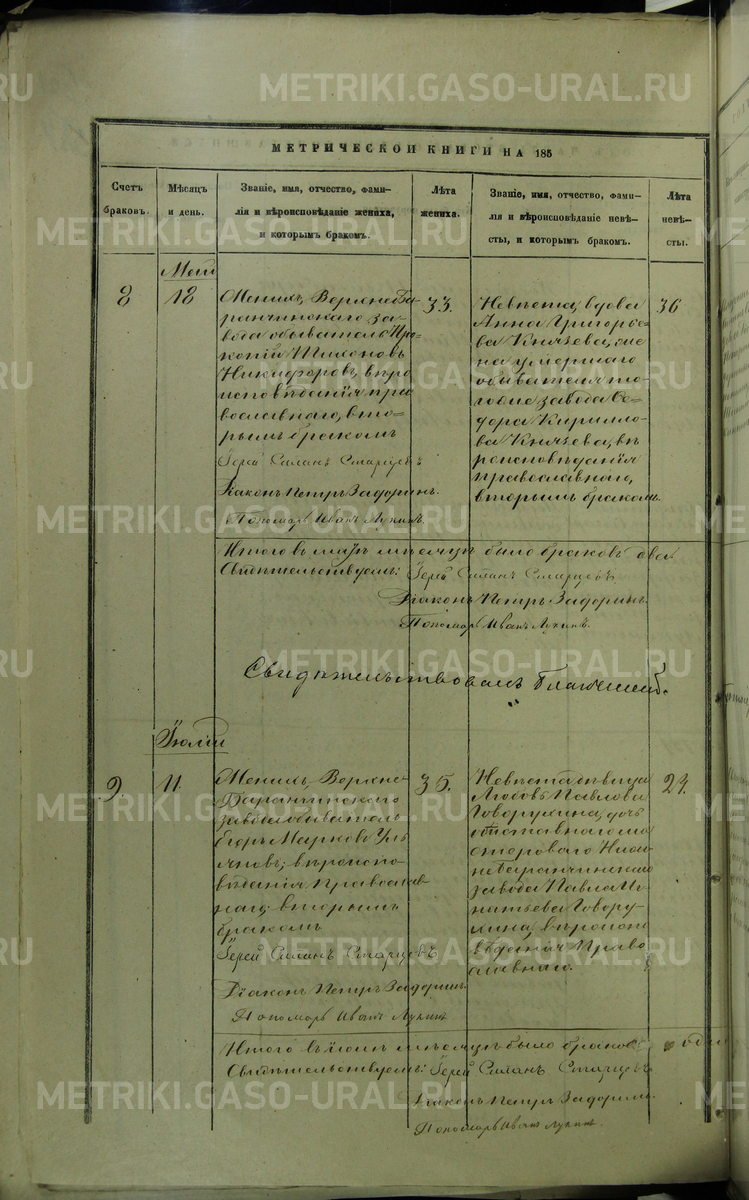 МЕТРИЧЕСКОЙ КНИГИ НА 185
Счетъ
браковъ.
Мѣсяцъ
и день.
Званіе, имя, отчество, фами-
лія и вѣроисповѣданіе жениха,
и которымъ бракомъ.
Лѣта
жениха.
Званіе, имя, отчество, фами-
лія и вѣроисповѣданіе невѣ-
сты, и которымъ бракомъ.
Лѣта
невѣ-
сты.
Маій
8
18
Женихъ, Верхнеба-
ранчинскаго за-
вода обыватель Про-
копій Тихоновъ
Никифоровъ, вѣро
исповѣданія пра
вославнаго, вто=
рымъ бракомъ
Іерей Силанъ Старцевъ
Діаконъ Петръ Задоринъ.
Пономарь Иванъ Лукинъ.
33.
Невѣста, вдова
Анна Григорье-
ва Князева, же
на умершаго
обывателя то-
го же завода Си-
дора Кирилло-
ва Князева, вѣ
роисповѣданія
православнаго,
вторымъ бракомъ.
36
Итого въ маіѣ мѣсяцѣ было браковъ два
Свидѣтельствуемъ: Іерей Силанъ Старцевъ
Діаконъ Петръ Задоринъ.
Пономарь Иванъ Лукинъ.
Свидѣтельствовалъ Благочинный
9.
Іюлій
11.
Женихъ, Верхне-
Баранчинскаго
завода обыватель
Егоръ Марковъ Уль
яновъ, вѣроиспо-
вѣданія Православ
наго, вторымъ
бракомъ
Іерей Силанъ Старцевъ
Діаконъ Петръ Задоринъ.
Пономарь Иванъ Лукинъ
35.
Невѣста, дѣвица
Любовь Павлова
Говорухина, дочь
отставнаго ма
стероваго Ниж
небаранчинскаго
завода Павла Иг
натьева Говору-
хина, вѣроиспо
вѣданія Право
славнаго.
24.
Итого въ іюлѣ мѣсяцѣ было браковъ одинъ
Свидѣтельствуемъ: Іерей Силанъ Старцевъ
Діаконъ Петръ Задоринъ.
Пономарь Иванъ Лукинъ.
METRIKI.GASO-URAL.RU